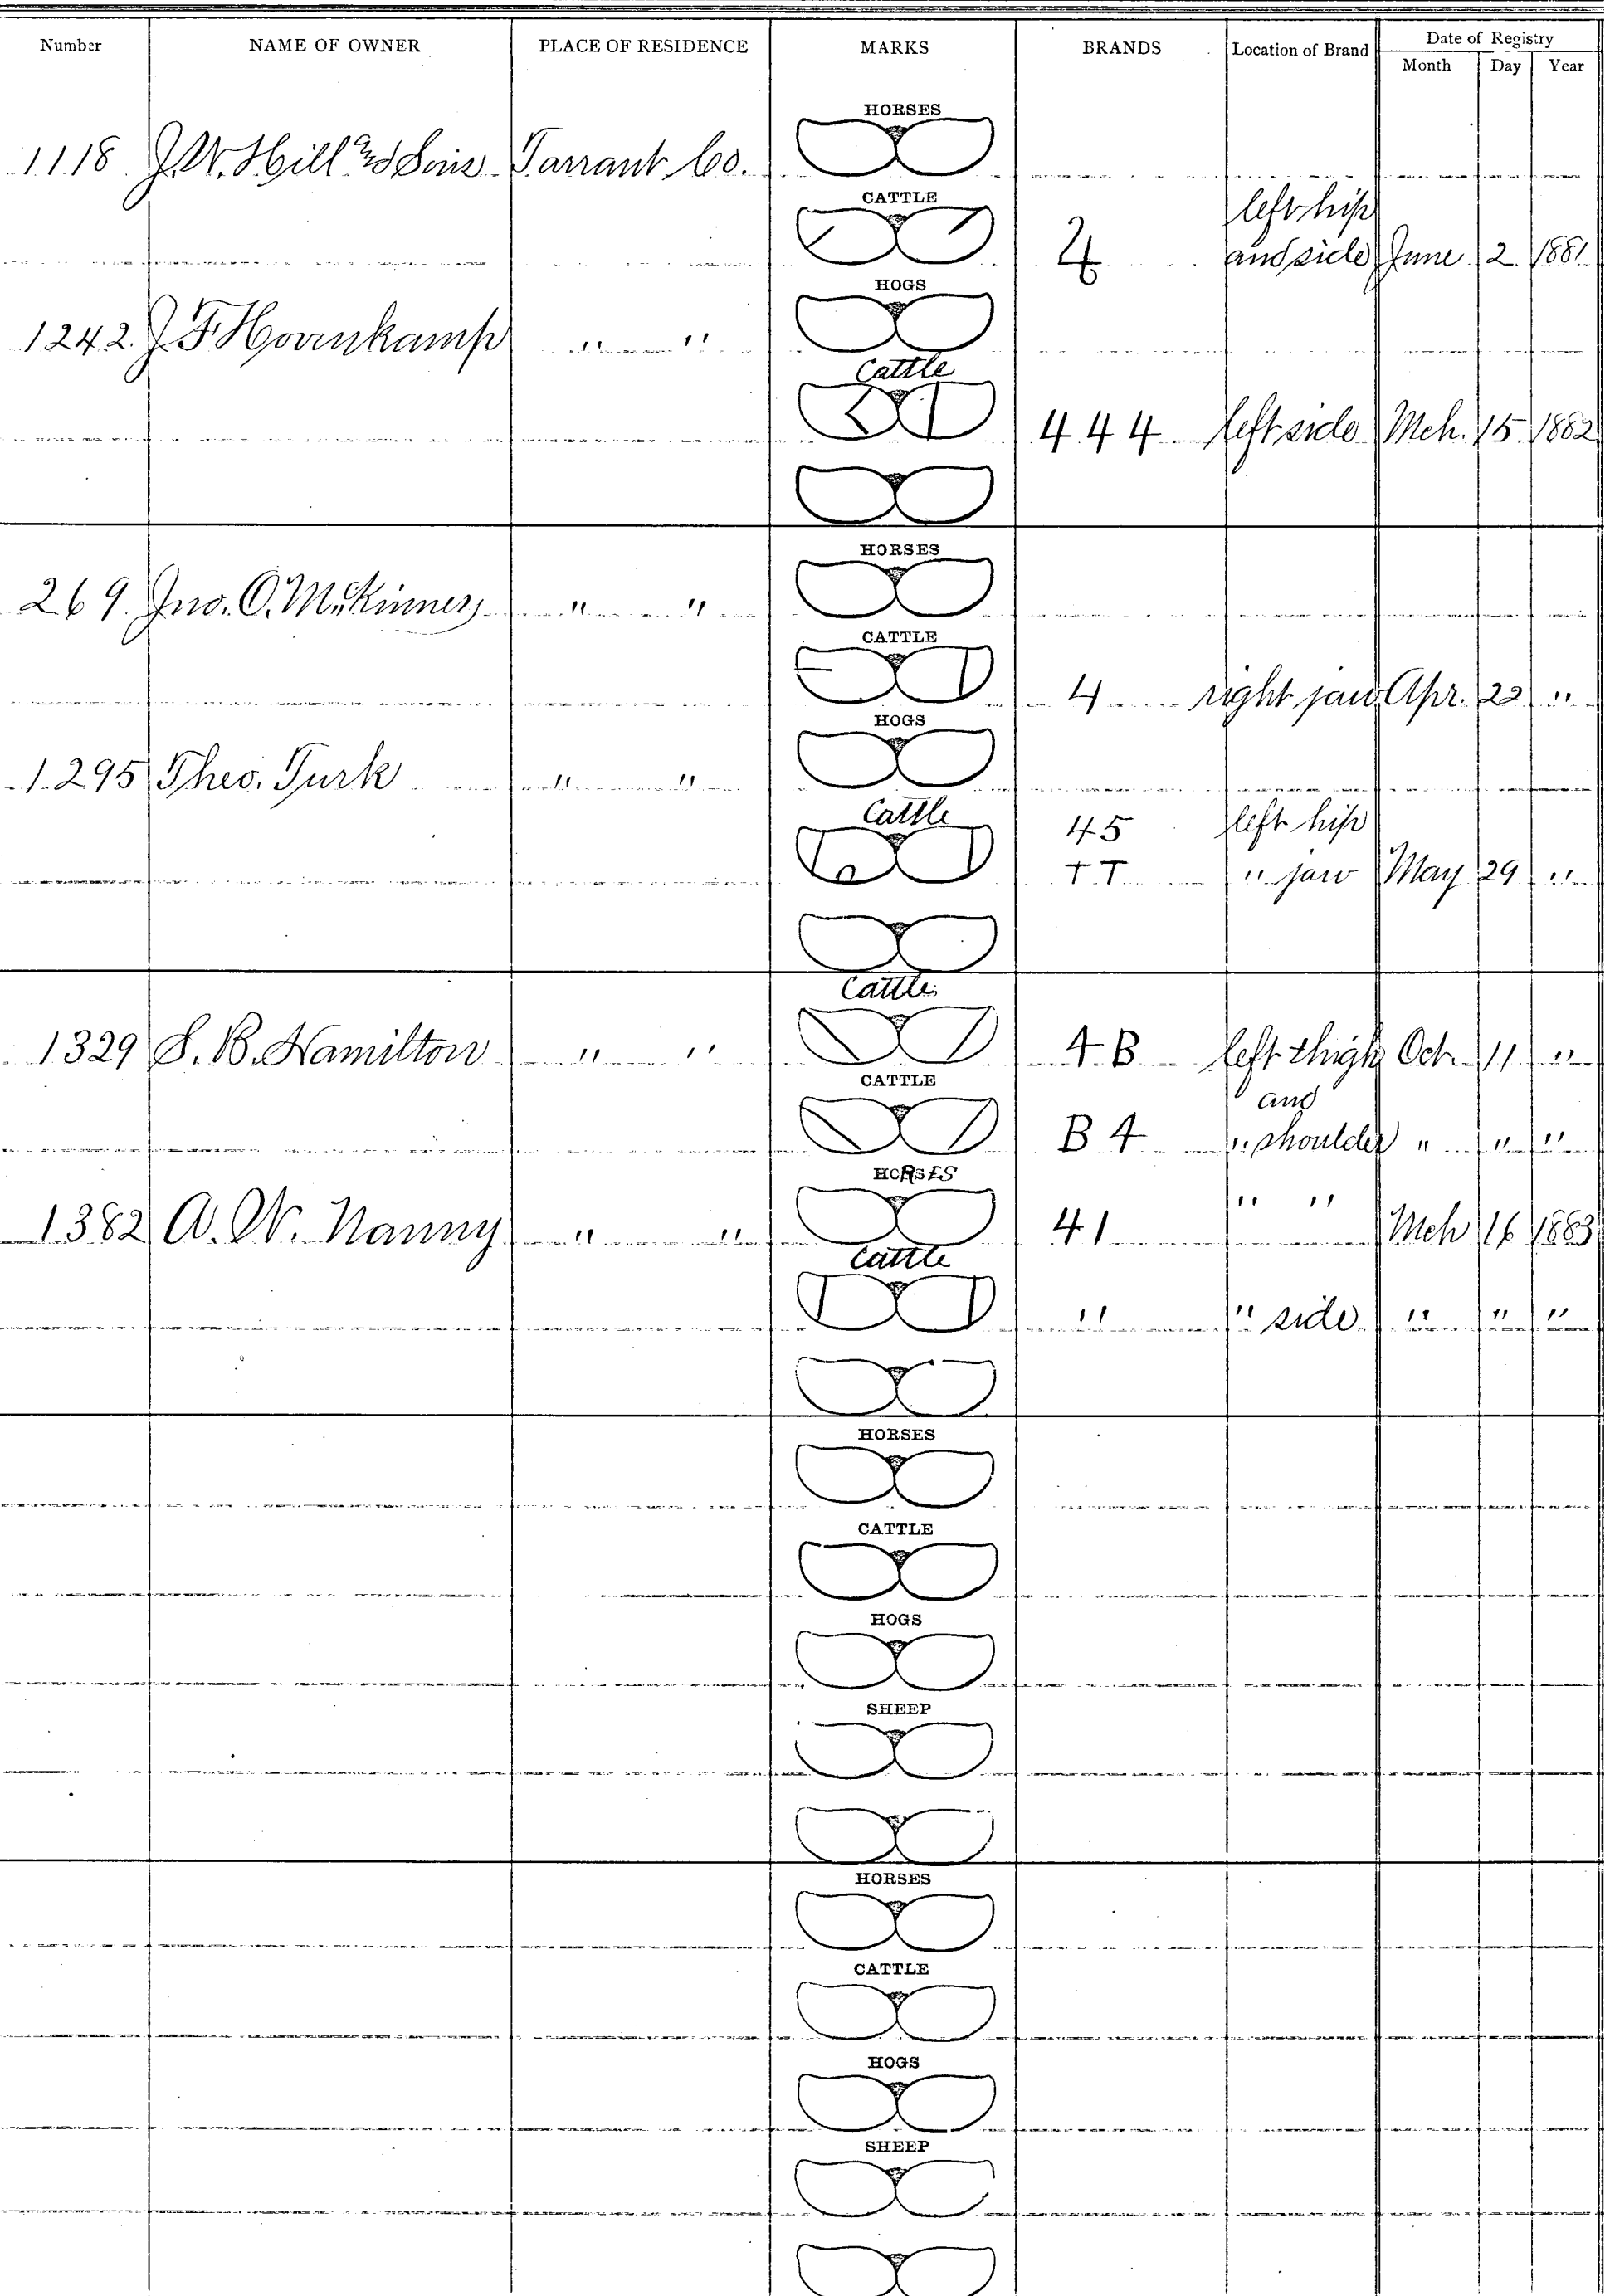 Number NAME OF OWNER PLACE OF RESIDENCE MARKS BRANDS Location of Brand Date of Registry
Month Day Year
HORSES
1118 J.W. Hill & Sons Tarrant Co.
CATTLE
left hip
4 and side June 2 1881
HOGS
1242 J F Hovenkamp " "
Cattle
4 4 4 left side Mch. 15 1882
HORSES
269 Jno. O. McKinney " "
CATTLE
4 right jaw Apr. 22 "
HOGS
1295 Theo. Turk " "
Cattle
45 left hip
T T " jaw May 29 "
Cattle
1329 S. B. Hamilton " " 4 B left thigh Oct. 11 "
CATTLE
and
B 4 " shoulder " " "
HORSES
" "
1382 A. W. Nanny " " 41 Mch 16 1883
Cattle
" " side " " "
HORSES
CATTLE
HOGS
SHEEP
HORSES
CATTLE
HOGS
SHEEP